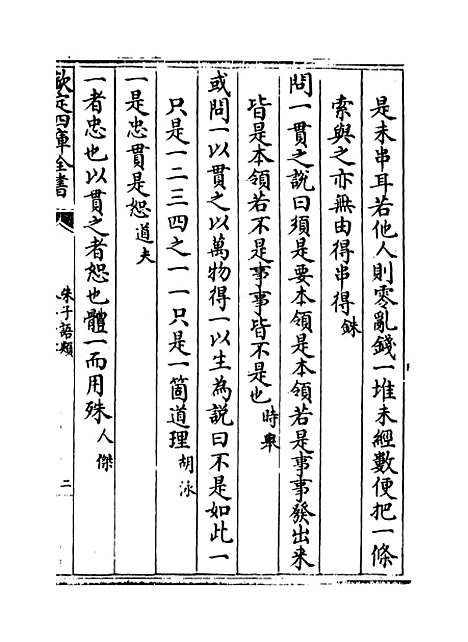 是未串耳若他人則零亂錢一堆未經數便把一條
索與之亦無由得串得銖
問一貫之說曰須是要本領是本領若是事事發出來
皆是本領若不是事事皆不是也時舉
或問一以貫之以萬物得一以生為說曰不是如此一
只是一二三四之一一只是一箇道理胡泳
一是忠貫是恕道夫
一者忠也以貫之者恕也體一而用殊人傑
欽定四庫全書
朱子語類
二